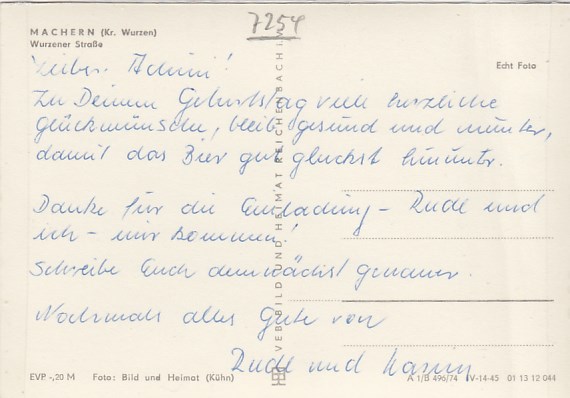 7254
MACHERN (Kr. Wurzen)
Wurzener Straße
Echt Foto
Lieber Achim!
Zu Deinem Geburtstag viele herzliche
glückwünsche, bleib gesund und munter,
damit das Bier gut gluckst hinunter.
Danke für die Einladung – Rudi und
ich – wir kommen!
Schreibe Euch demnächst genauer.
Nochmals alles Gute von
Rudi und Karin
VEB BILD UND HEIMAT REICHENBACH i. V.
EVP -,20 M Foto: Bild und Heimat (Kühn)
A 1/B 496/74 IV-14-45 01 13 12 044